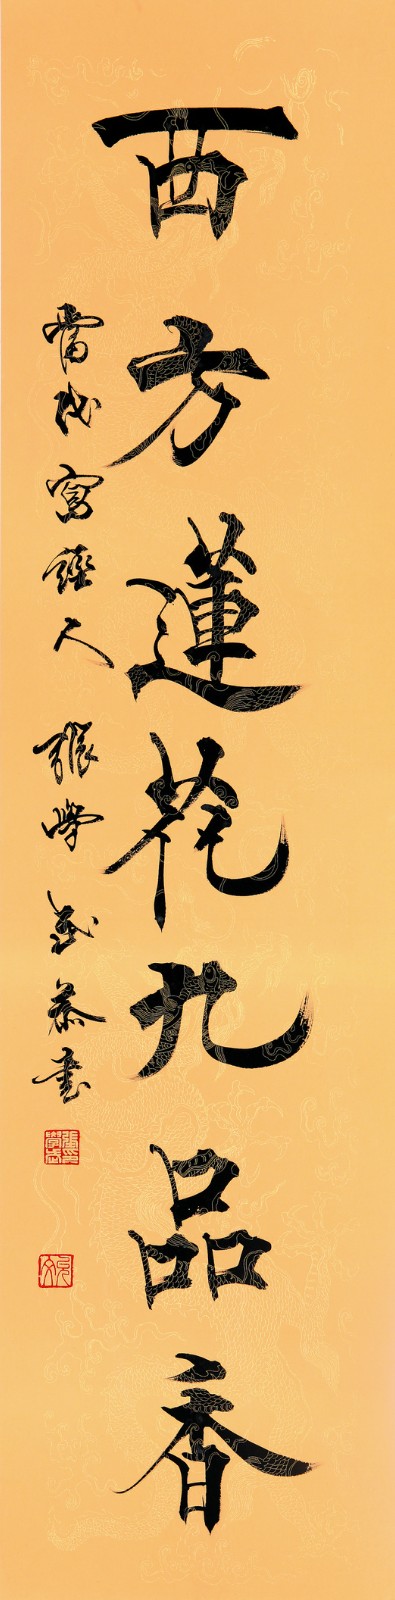 西方蓮花九品香
當代寫經人 張學武恭書
張學武印